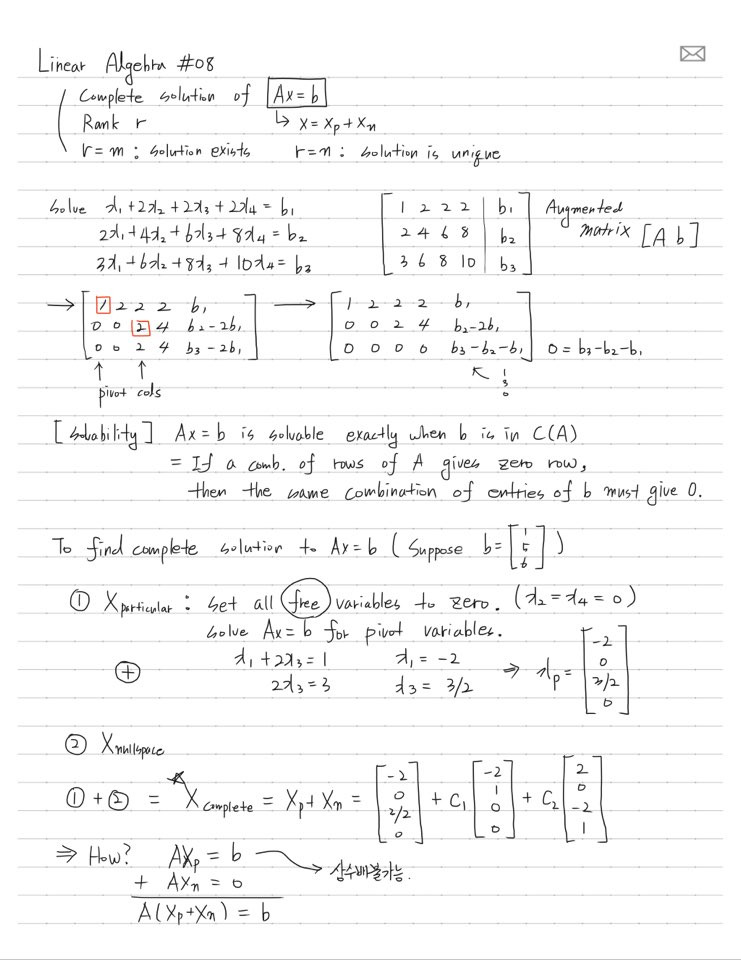 Linear Algebra #08
Complete solution of Ax = b
Rank r ↳ x = xp + xn
r = m : solution exists r = n : solution is unique
Solve x1 + 2x2 + 2x3 + 2x4 = b1 [ 1 2 2 2 | b1 ] Augmented
2x1 + 4x2 + 6x3 + 8x4 = b2 [ 2 4 6 8 | b2 ] matrix [A b]
3x1 + 6x2 + 8x3 + 10x4 = b3 [ 3 6 8 10 | b3 ]
→ [ 1 2 2 2 b1 ] → [ 1 2 2 2 b1 ]
[ 0 0 2 4 b2-2b1 ] [ 0 0 2 4 b2-2b1 ]
[ 0 0 2 4 b3-2b1 ] [ 0 0 0 0 b3-b2-b1 ] 0 = b3-b2-b1
↑ ↑ ↖ 1
pivot cols 3
0
[Solvability] Ax = b is solvable exactly when b is in C(A)
= If a comb. of rows of A gives zero row,
then the same combination of entries of b must give 0.
To find complete solution to Ax = b ( Suppose b = [ 1 5 6 ] )
① Xparticular : Set all free variables to zero. (x2 = x4 = 0)
Solve Ax = b for pivot variables.
x1 + 2x3 = 1 x1 = -2
⊕ 2x3 = 3 x3 = 3/2 ⇒ xp = [ -2 0 3/2 0 ]
② Xnullspace
① + ② = Xcomplete = Xp + Xn = [ -2 0 3/2 0 ] + C1 [ -2 1 0 0 ] + C2 [ 2 0 -2 1 ]
⇒ How? AXp = b → 상수배불가능.
+ AXn = 0
A(Xp+Xn) = b